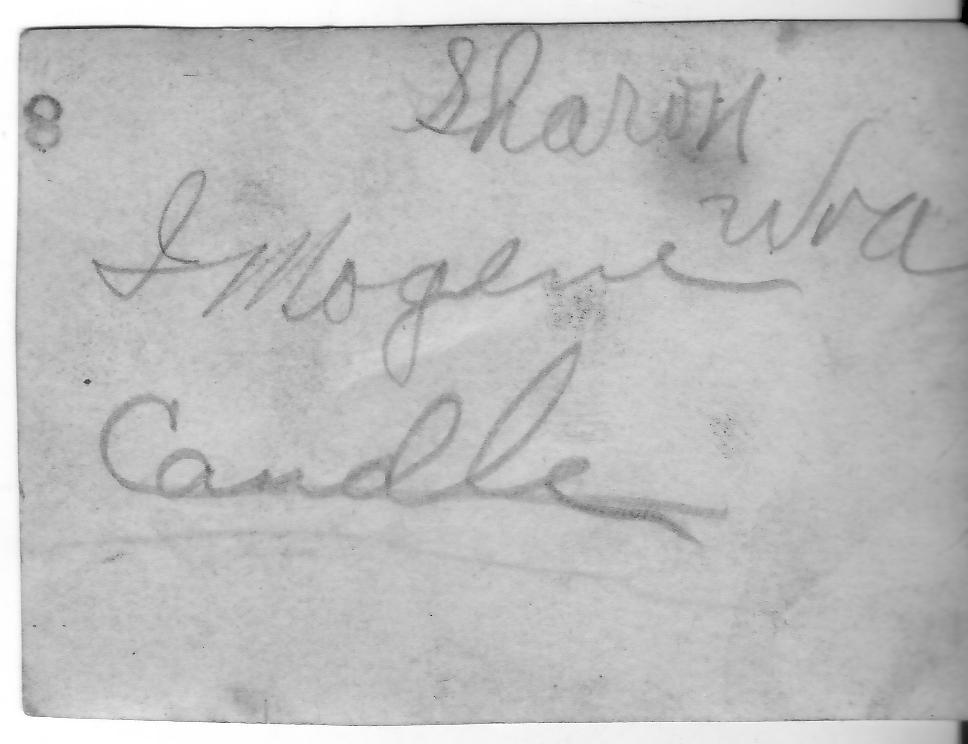 8
Sharon
I Mogene
Candle